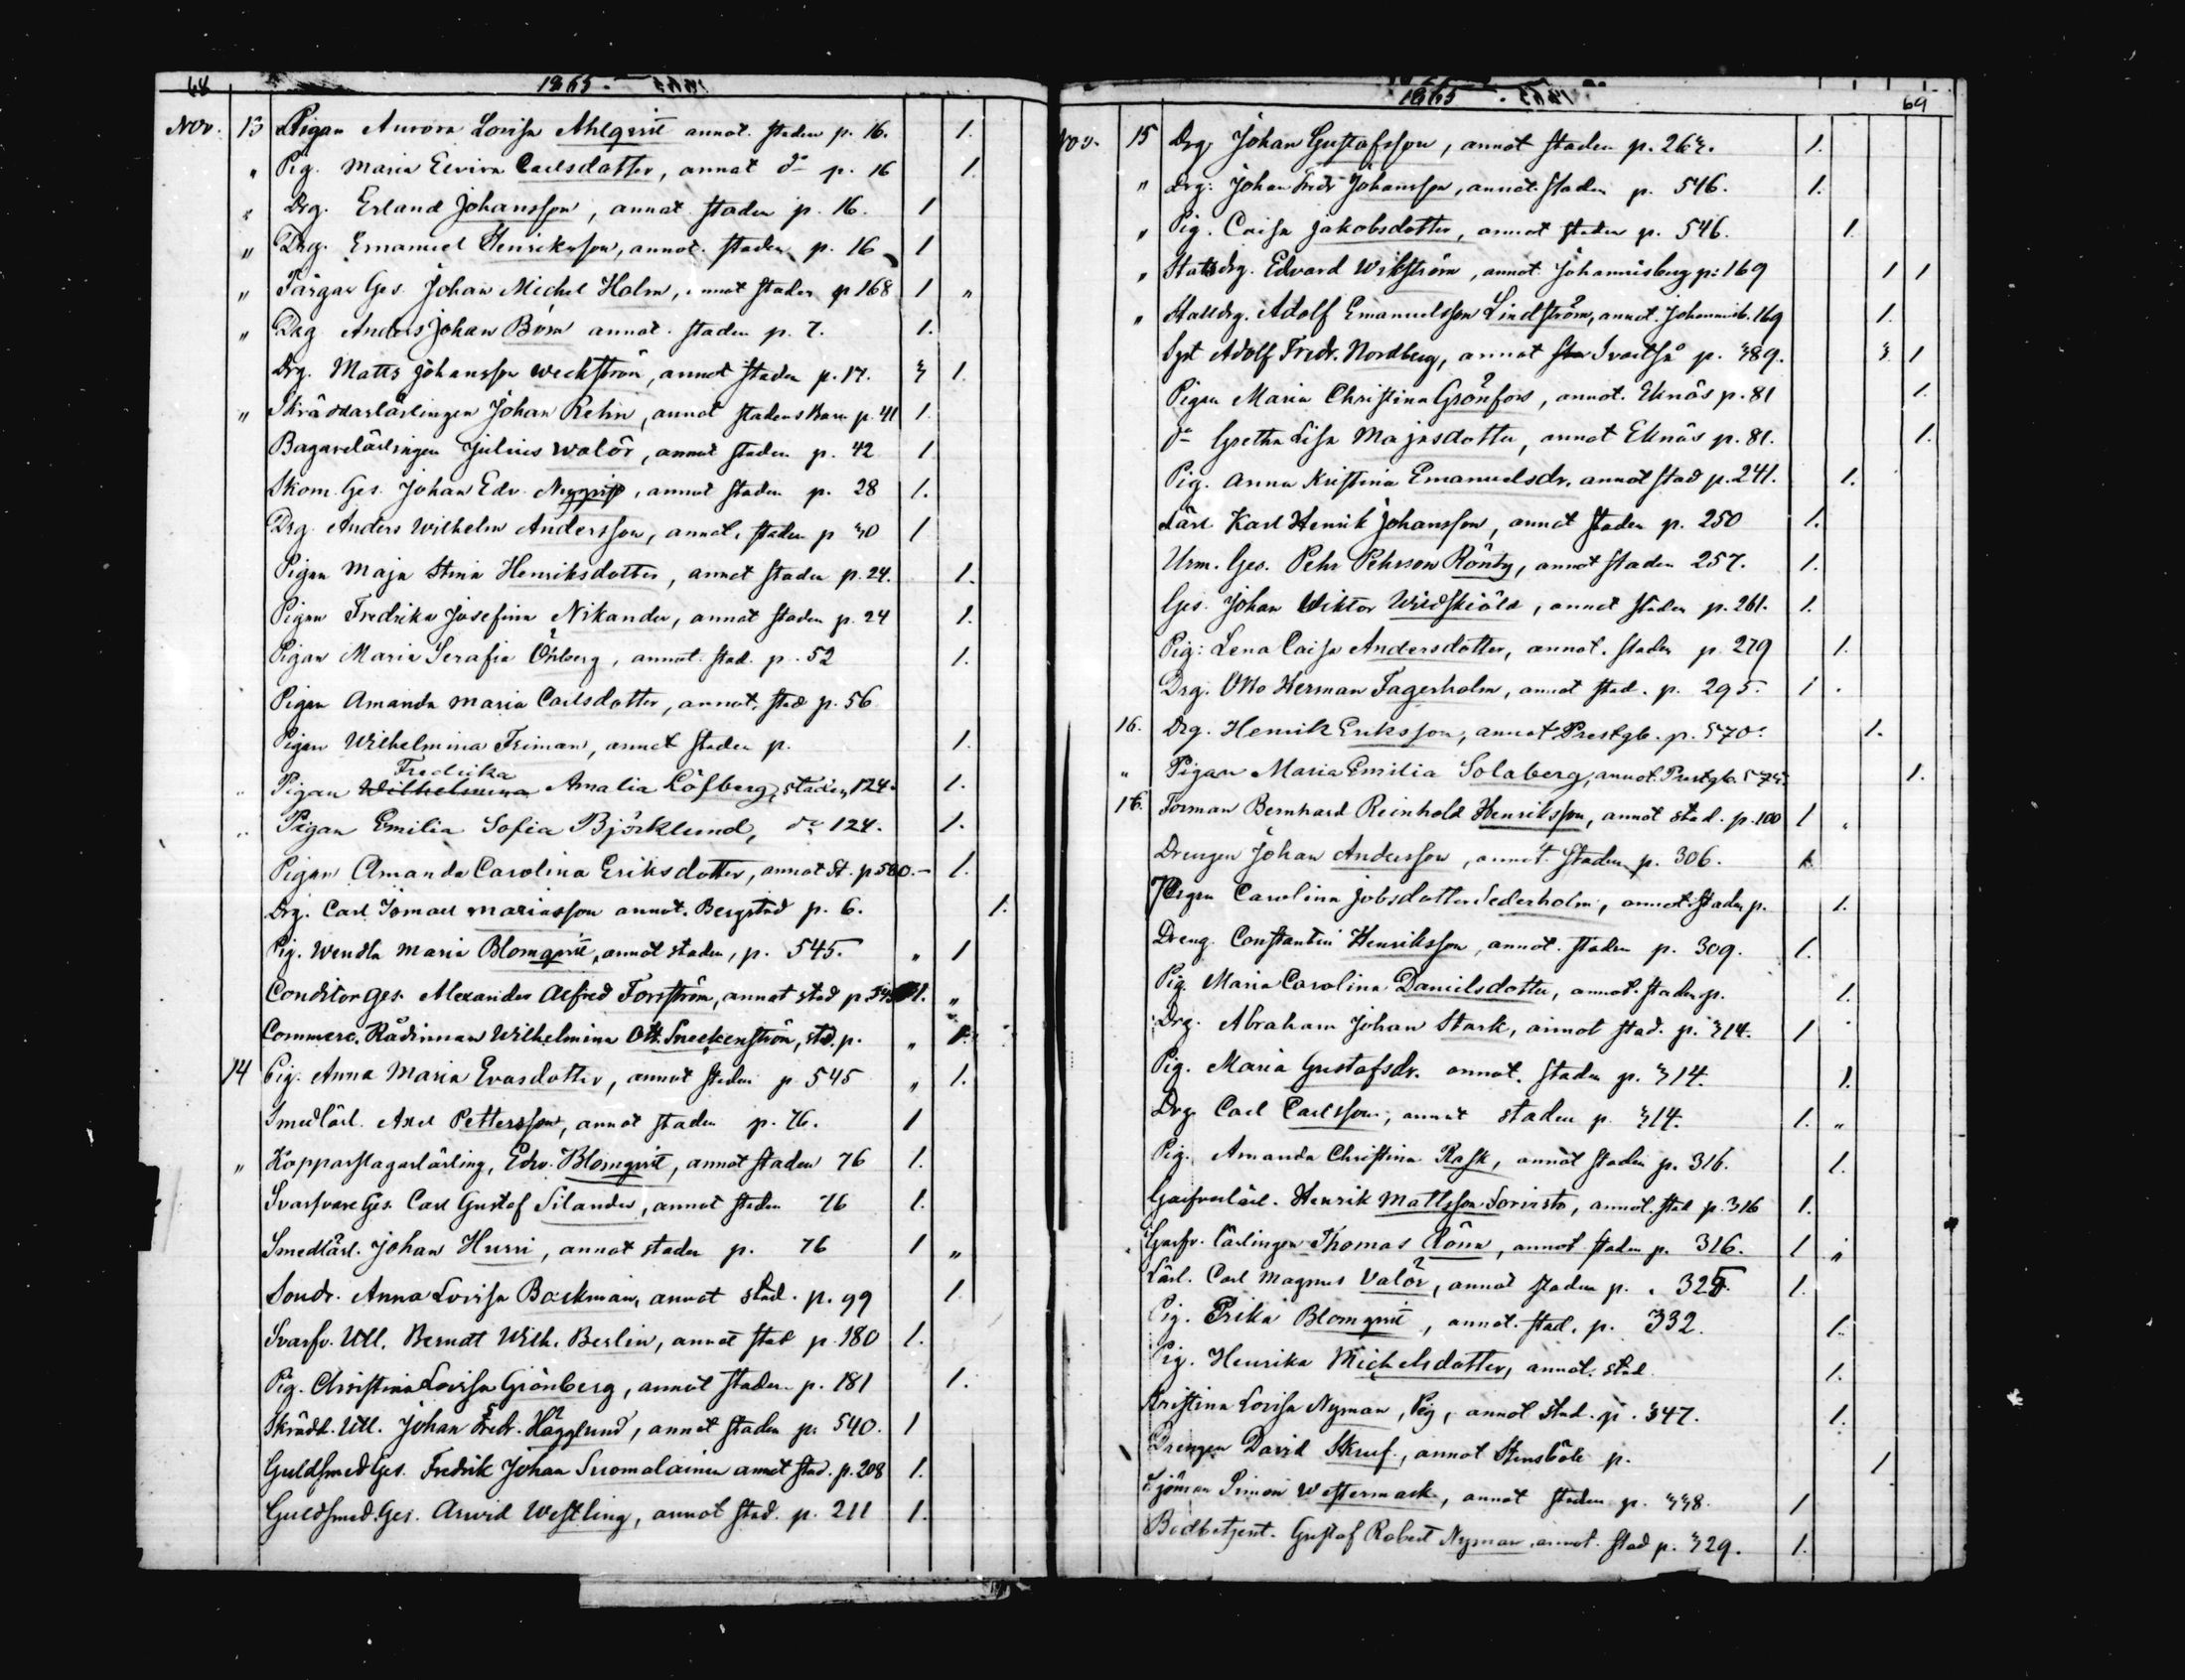 68
1865.
Nov. 13 Pigan Aurora Lovisa Ahlqvist annot. staden p. 16. 1.
" Pig. Maria Elvira Carlsdotter, annot do p. 16 1.
" Drg. Erland Johansson, annot staden p. 16. 1
" Drg. Emanuel Henriksson, annot. staden p. 16 1
" Färgar Ges. Johan Michel Holm, annot staden p 168 1 "
" Drg Anders Johan Böm annot. staden p. 7. 1.
Drg. Matts Johansson Weckström, annot staden p. 17. 1.
" Skräddarlärlingen Johan Rehn, annot stadens Barn p. 41 1.
Bagarelärlingen Julius Walör, annot staden p. 42 1
Skom. Ges. Johan Edv. Nyqvist, annot staden p. 28 1.
Drg. Anders Wilhelm Andersson, annot. staden p 30 1
Pigan Maja Stina Henriksdotter, annot staden p. 24. 1.
Pigan Fredrika Josefina Nikander, annot staden p. 24 1.
Pigan Maria Serafia Öhberg, annot. stad. p. 52 1.
Pigan Amanda Maria Carlsdotter, annot. stad p. 56
Pigan Wilhelmina Friman, annot staden p. 1.
Fredrika
Pigan Wilhelmina Amalia Löfberg, staden, 124. 1.
Pigan Emilia Sofia Björklund, do 124. 1.
Pigan Amanda Carolina Eriksdotter, annot St. p 500. – 1.
Drg. Carl Ismael Mariasson annot. Bergstad p. 6. 1.
Pig. Wendla Maria Blomqvist, annot staden, p. 545. " 1
Conditor Ges. Alexander Alfred Forsström, annot stad p. 1. "
Commerc. Rådinnan Wilhelmina Ott. Sneckenström, std. p. " 1.
14 Pig. Anna Maria Evasdotter, annot staden p 545 " 1.
Smedlärl. Axel Pettersson, annot staden p. 76. 1
" Kopparslagarlärling, Edv. Blomqvist, annot staden 76 1.
Svarfvare Ges. Carl Gustof Silander, annot staden 76 1.
Smedlärl. Johan Hurri, annot staden p. 76 1 "
Sondr. Anna Lovisa Backman, annot stad. p. 99 1.
Svarfv. Utl. Berndt Wilh. Berlin, annot stad p. 180 1.
Pig. Christina Lovisa Grönberg, annot staden p. 181 1.
Skrädd. Utl. Johan Fredr. Hägglund, annot staden p. 540. 1
Guldsmed Ges. Fredrik Johan Suomalainen annot stad. p. 208 1.
Guldsmed. Ges. Arvid Westling, annot stad. p. 211 1.
1865
69
Nov. 15 Drg. Johan Gustafsson, annot staden p. 263. 1.
" Drg: Johan Fredr Johansson, annot. staden p. 546. 1.
" Pig. Caisa Jakobsdotter, annot staden p. 546. 1.
" Statsdrg. Edvard Wikström, annot. Johannisberg p: 169 1 1
" Stalldrg. Adolf Emanuelsson Lindström, annot. Johannisb. 169 1.
Syst Adolf Fredr. Nordberg, annot Svartså p. 389. 1
Pigan Maria Christina Grönfors, annot. Eknäs p. 81 1.
do Gretha Lisa Majasdotter, annot Eknäs p. 81. 1.
Pig. Anna Kristina Emanuelsdr, annot stad p. 241. 1.
Lärl. Karl Henrik Johansson, annot staden p. 250 1.
Urm. Ges. Pehr Pehrsson Rönby, annot staden 257. 1.
Ges. Johan Wiktor Widskiöld, annot staden p. 261. 1.
Pig: Lena Caisa Andersdotter, annot. staden p. 279 1.
Drg. Otto Herman Fagerholm, annot stad. p. 295. 1 .
16. Drg. Henrik Eriksson, annot Prestgb. p. 570. 1.
" Pigan Maria Emilia Solaberg, annot. Prestgb. 1.
16. Forman Bernhard Reinhold Henriksson, annot stad. p. 100 1
Drengen Johan Andersson, annot. staden p. 306. 1.
Pigan Carolina Jobsdotter Sederholm, annot. staden p. 1.
Dreng. Constantin Henriksson, annot. staden p. 309. 1.
Pig. Maria Carolina Danielsdotter, annot. staden p. 1.
Drg. Abraham Johan Stark, annot stad. p. 314. 1
Pig. Maria Gustafsdr. annot. staden p. 314. 1.
Drg Carl Carlsson, annot staden p. 314. 1. "
Pig. Amanda Christina Rask, annot staden p. 316. 1.
Garfvarlärl. Henrik Mattsson Sorvisto, annot. stad p. 316 1.
Garfv. Lärlingen Thomas Rönn, annot staden p. 316. 1 "
Lärl. Carl Magnus Valör, annot staden p. 325. 1.
Pig. Erika Blomqvist, annot. stad. p. 332. 1.
Pig. Henrika Michelsdotter, annot. stad. 1.
Kristina Lovisa Nyman, Pig, annot stad. p. 347. 1.
Drengen David Skruf, annot Stensböle p. 1
Sjöman Simon Westermark, annot staden p. 338. 1
Bodbetjent. Gustaf Robert Nyman annot. stad p. 329. 1.